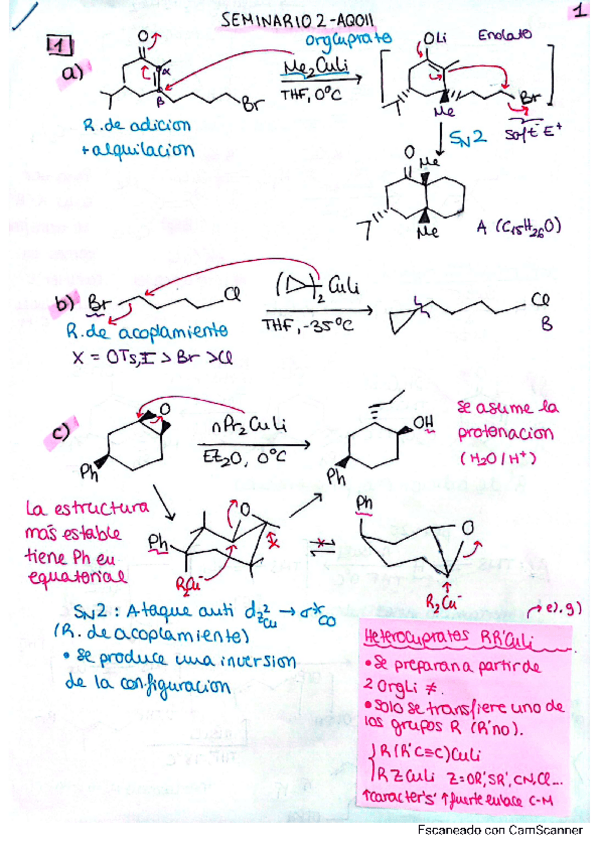 SEMINARIO 2-AQOII
1
1
a)
orgcuprato
Me2CuLi
THF, 0°C
O
α
β
Br
OLi
Enolato
Me
Br
Soft E+
SN2
R. de adicion
+ alquilacion
O
Me
Me
A (C15H26O)
b)
Br
Cl
(▷)2 CuLi
THF, -35°C
Cl
B
R. de acoplamiento
X = OTs, I > Br > Cl
c)
O
Ph
nPr2CuLi
Et2O, 0°C
OH
Ph
Se asume la
protonacion
(H2O/H+)
La estructura
más estable
tiene Ph en
equatorial
Ph
O
R2Cu-
x
Ph
O
R2Cu-
SN2: Ataque anti dz2Cu → σ*CO
(R. de acoplamiento)
• Se produce una inversion
de la configuracion
→ e), g)
Heterocupratos RR'CuLi
• Se preparan a partir de
2 OrgLi ≠.
• Solo se transfiere uno de
los grupos R (R' no).
R(R'C≡C)CuLi
RZCuLi Z=OR', SR', CN, Cl...
↑caracter 's' ↑fuerte enlace C-M
Escaneado con CamScanner